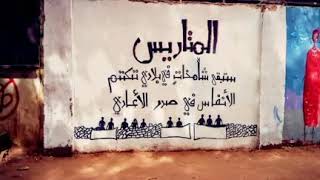 المتاريس
ستبقى شامخات في بلادي تتكتم
الأنفاس في صدر الأعادي